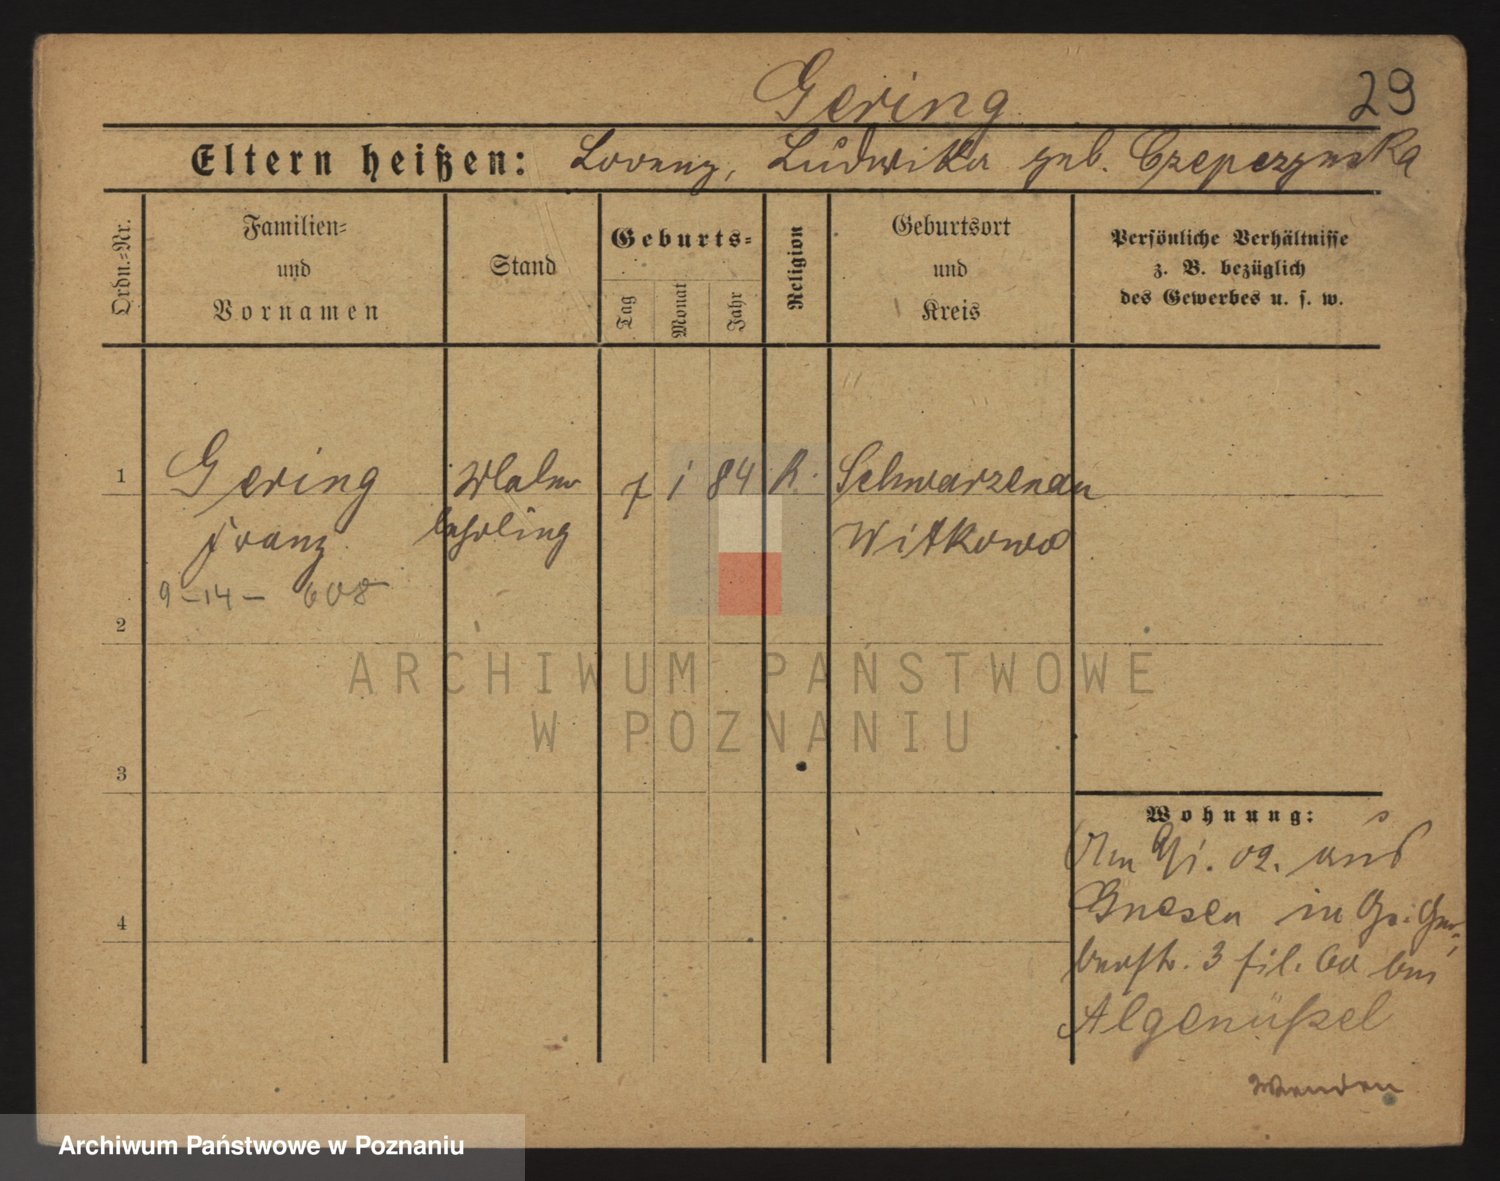 Gering
29
Eltern heißen: Lorenz, Ludwika geb. Czepczynska
Ordn.-Nr.
Familien-
und
Vornamen
Stand
Geburts-
Tag
Monat
Jahr
Religion
Geburtsort
und
Kreis
Persönliche Verhältnisse
z. B. bezüglich
des Gewerbes u. s. w.
1 Gering Maler 7 1 84 K. Schwarzenau
Franz lehrling Witkowo
9-14- 608
2
ARCHIWUM PAŃSTWOWE
W POZNANIU
3
Wohnung:
Am 9/1. 02. aus
4
Gnesen in Gr. Ger-
berstr. 3 bei
Algenüßel
Wenden
Archiwum Państwowe w Poznaniu